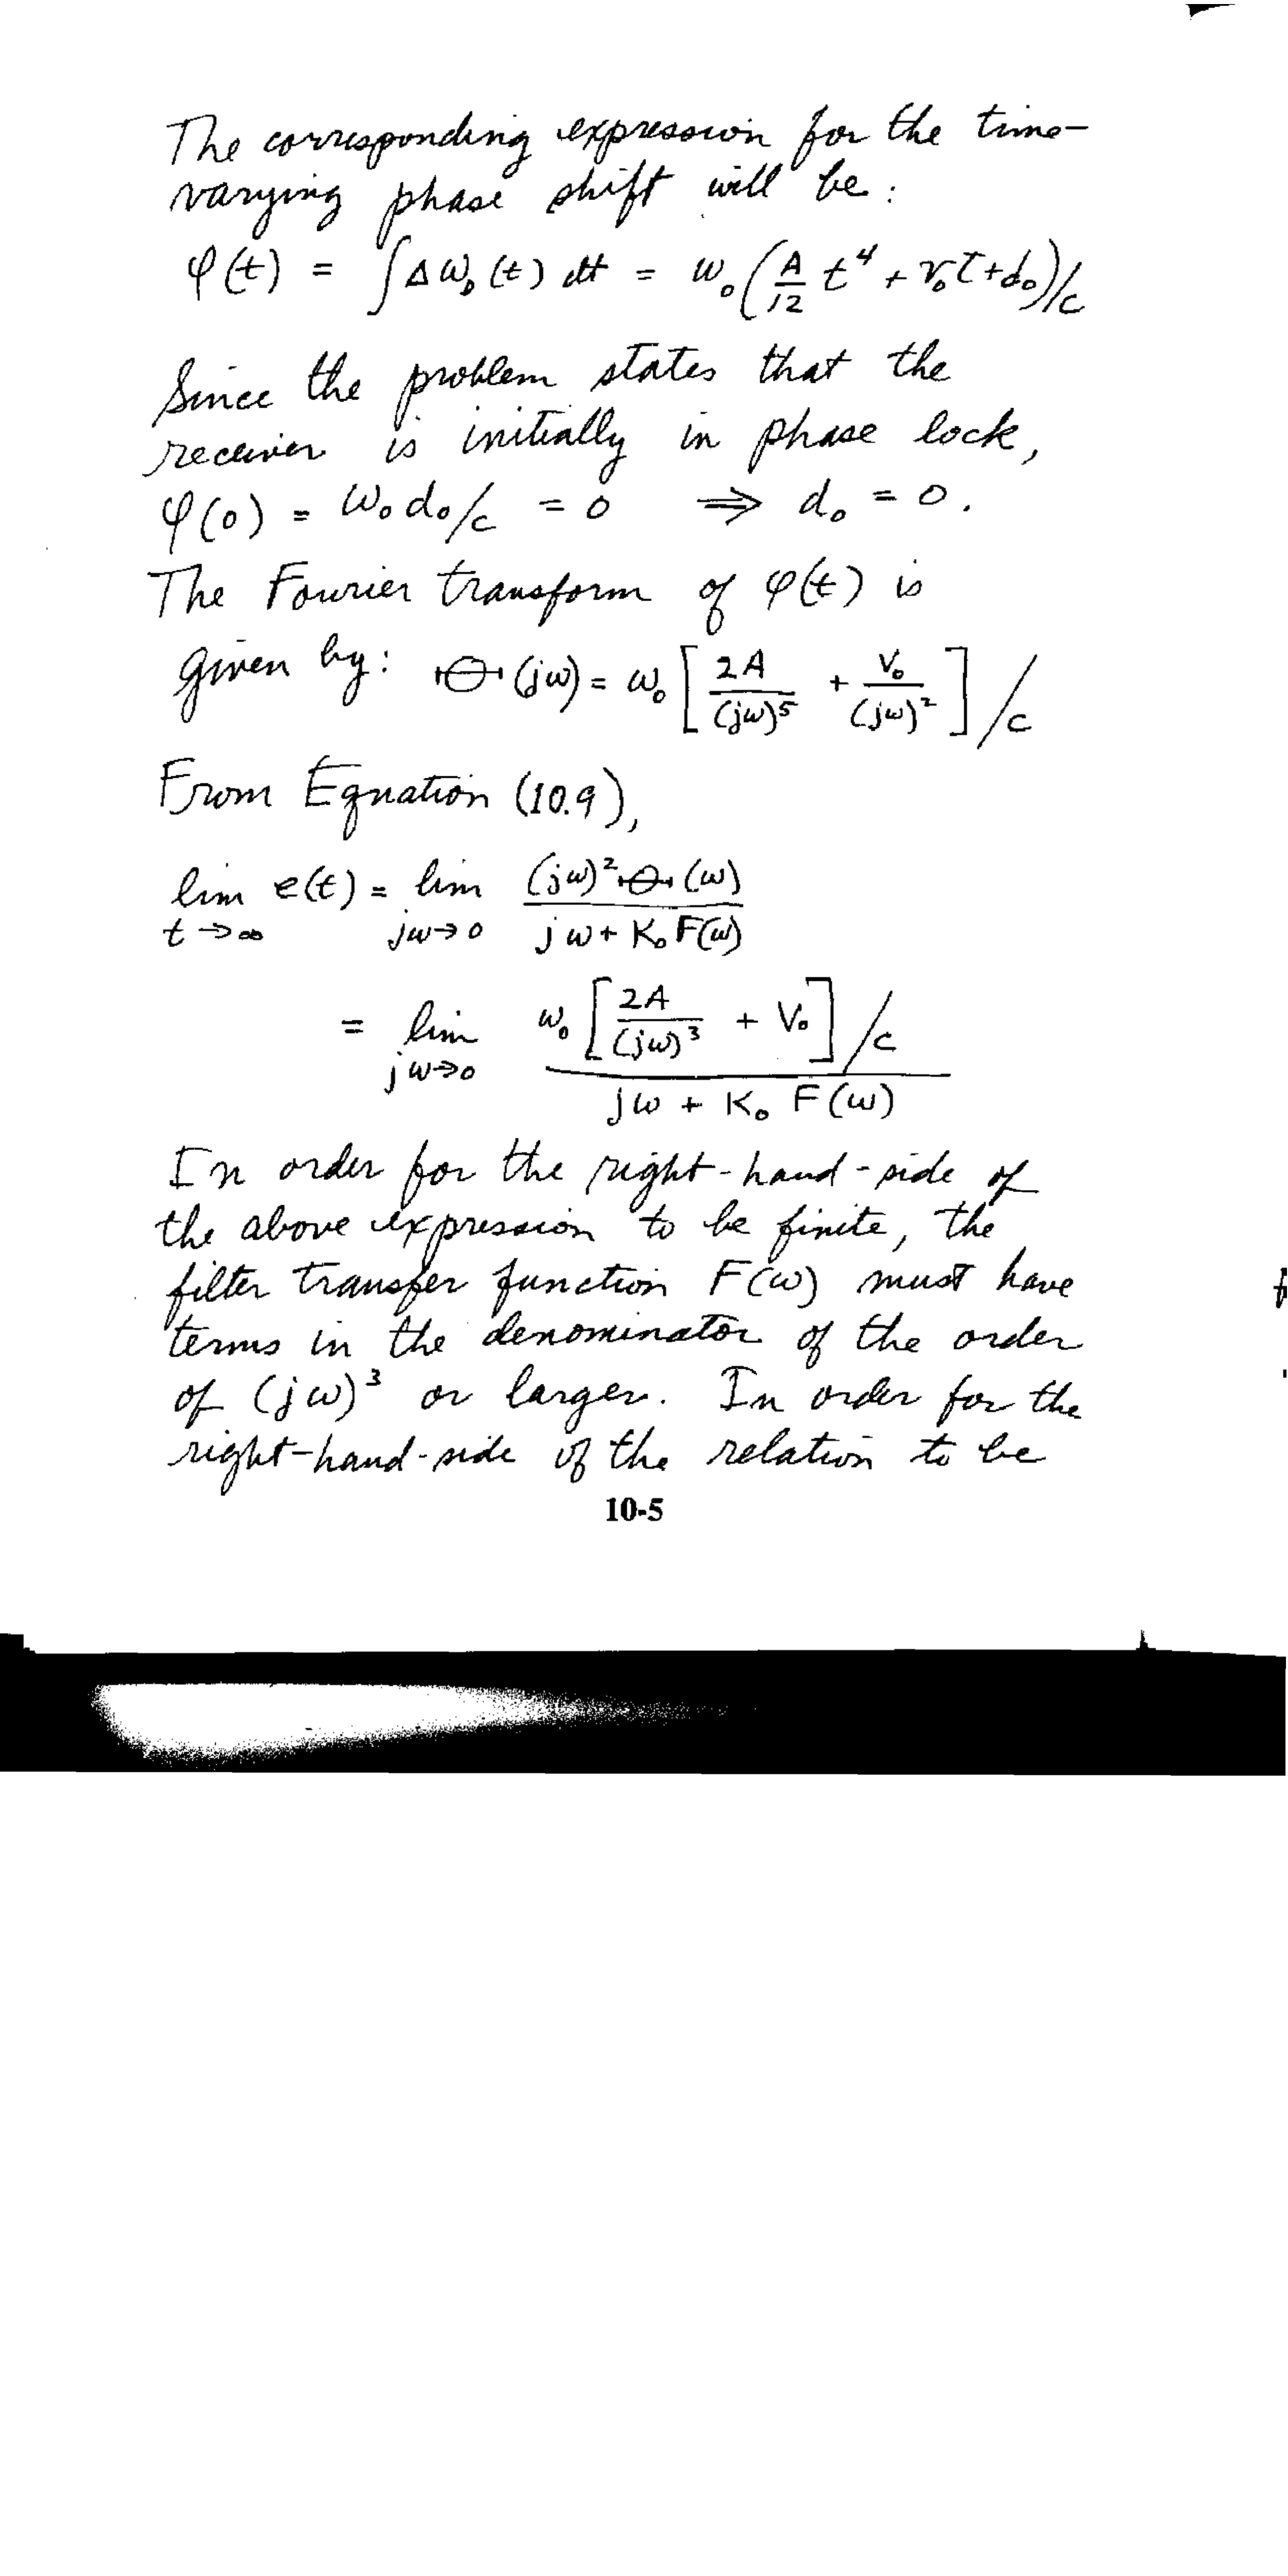 The corresponding expression for the time-
varying phase shift will be:
φ(t) = ∫Δω₀(t) dt = ω₀(A/12 t⁴ + v₀t + d₀)/c
Since the problem states that the
receiver is initially in phase lock,
φ(0) = ω₀d₀/c = 0 ⇒ d₀ = 0.
The Fourier transform of φ(t) is
given by: Θ(jω) = ω₀[2A/(jω)⁵ + V₀/(jω)²]/c
From Equation (10.9),
lim t→∞ e(t) = lim jω→0 (jω)²Θ(ω)/(jω + K₀F(ω))
= lim jω→0 ω₀[2A/(jω)³ + V₀]/c / (jω + K₀ F(ω))
In order for the right-hand-side of
the above expression to be finite, the
filter transfer function F(ω) must have
terms in the denominator of the order
of (jω)³ or larger. In order for the
right-hand-side of the relation to be
10-5